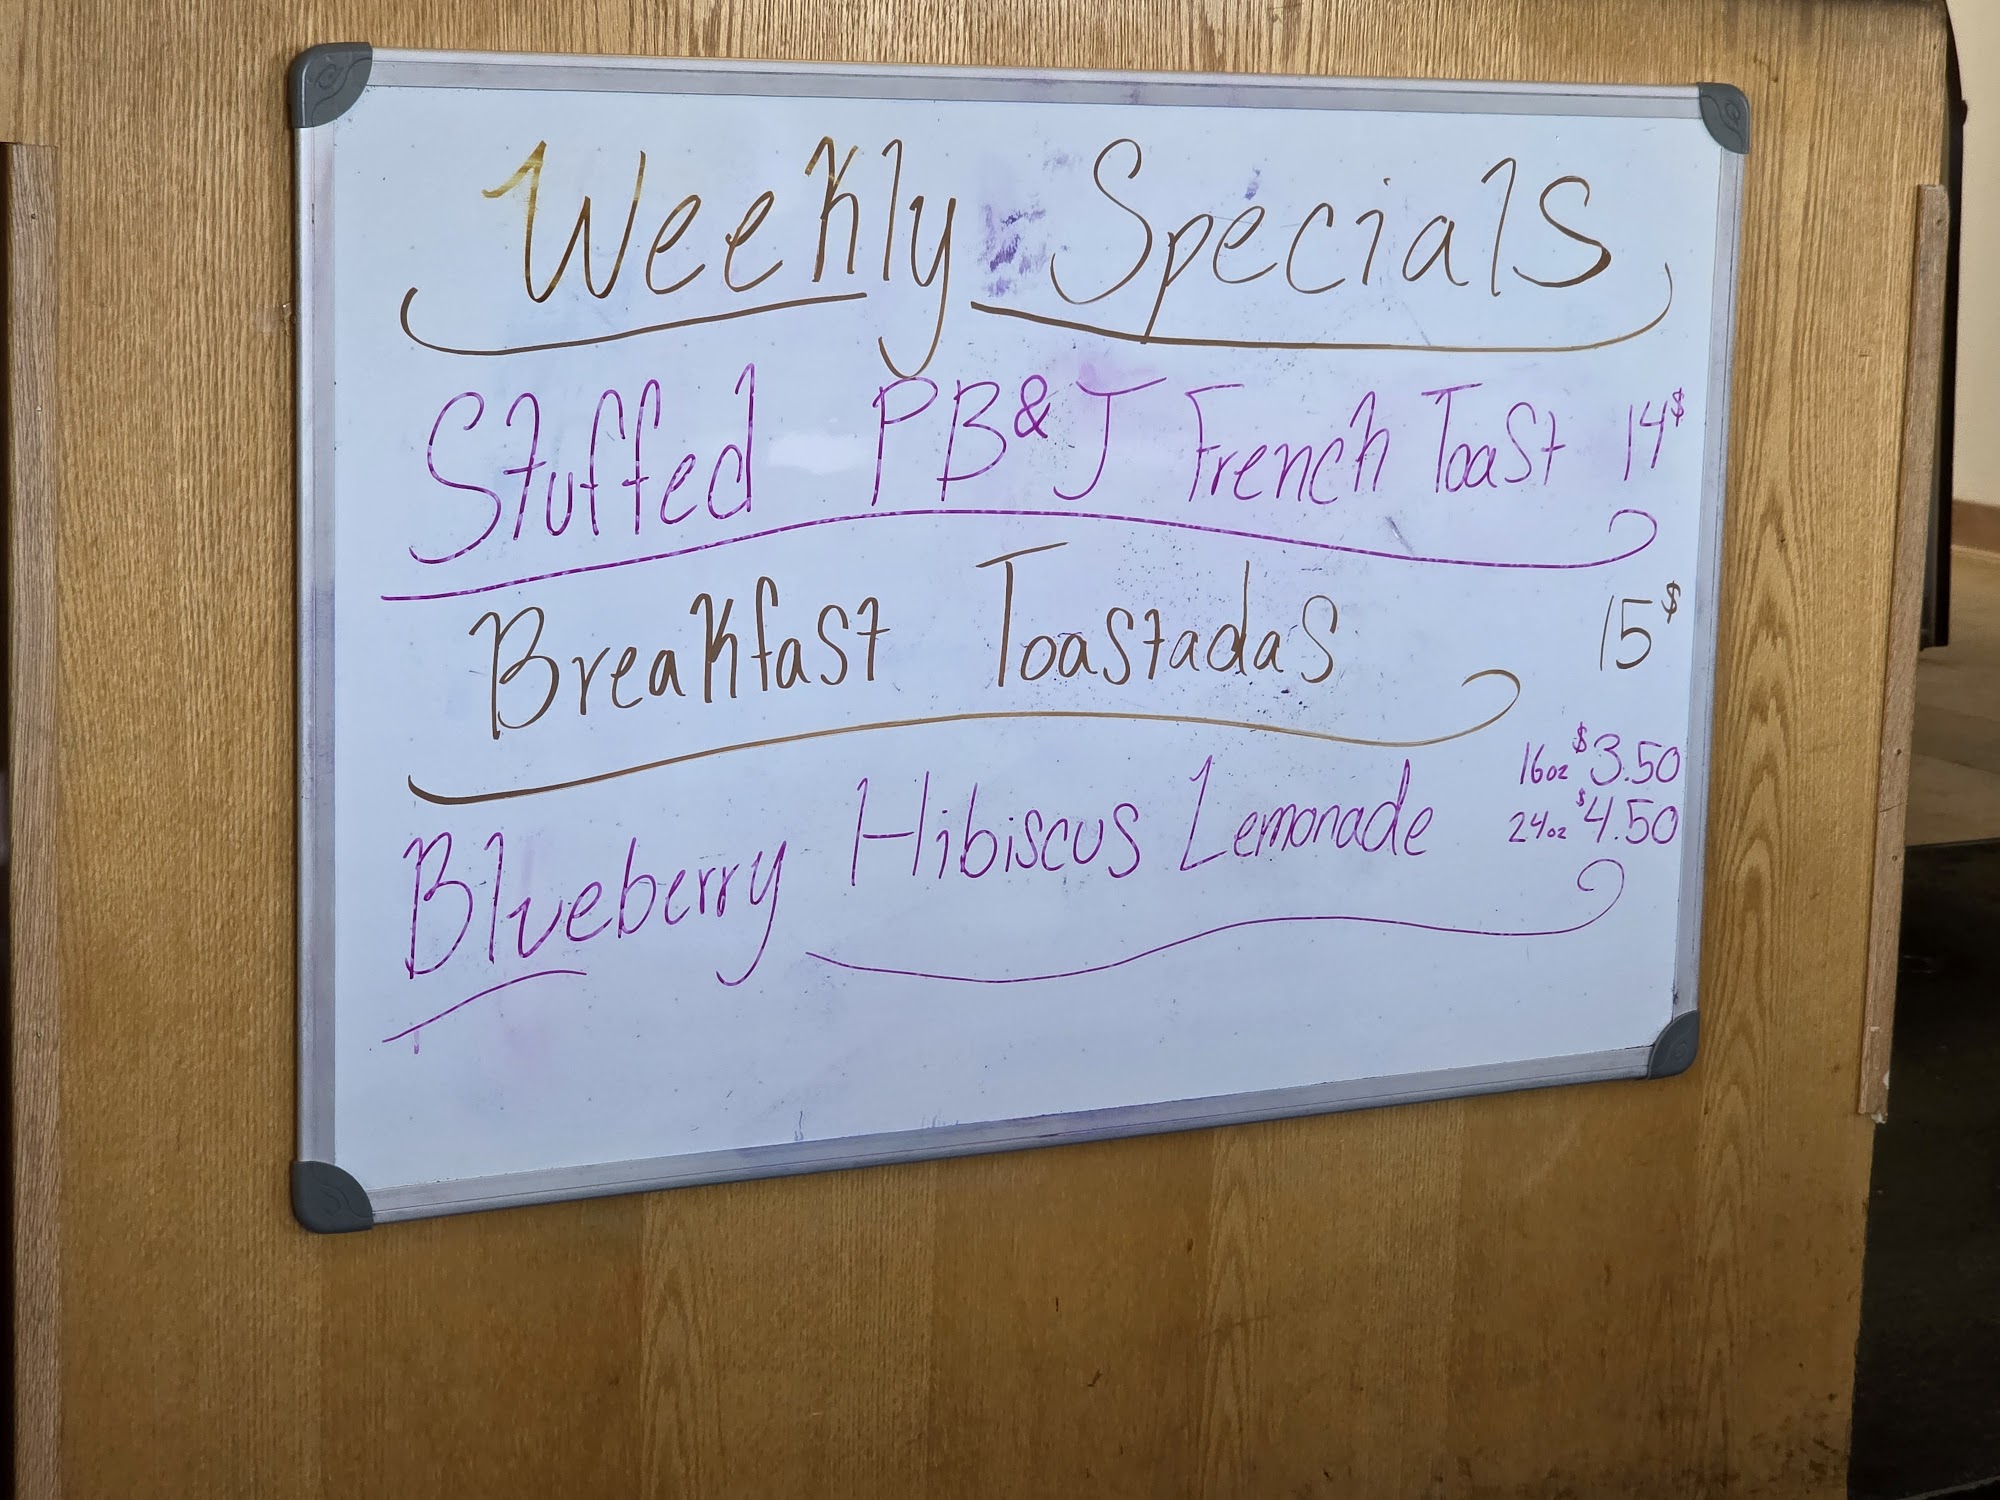 Weekly Specials
Stuffed PB&J French Toast 14$
Breakfast Toastadas 15$
16oz $3.50
Blueberry Hibiscus Lemonade 24oz $4.50